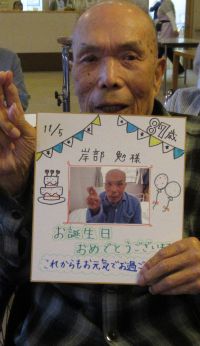 11/5
87歳
岸部 勉 様
お誕生日
おめでとうござい
これからもお元気でお過ご